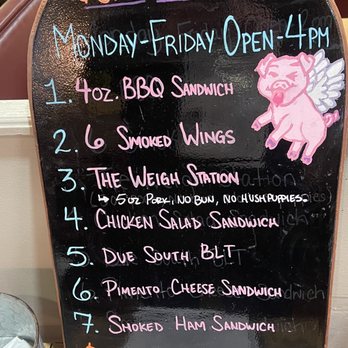 Monday-Friday Open-4pm
1. 4oz. BBQ Sandwich
2. 6 Smoked Wings
3. The Weigh Station
↳ 5 oz Pork, No Bun, No Hushpuppies.
4. Chicken Salad Sandwich
5. Due South BLT
6. Pimento Cheese Sandwich
7. Smoked Ham Sandwich